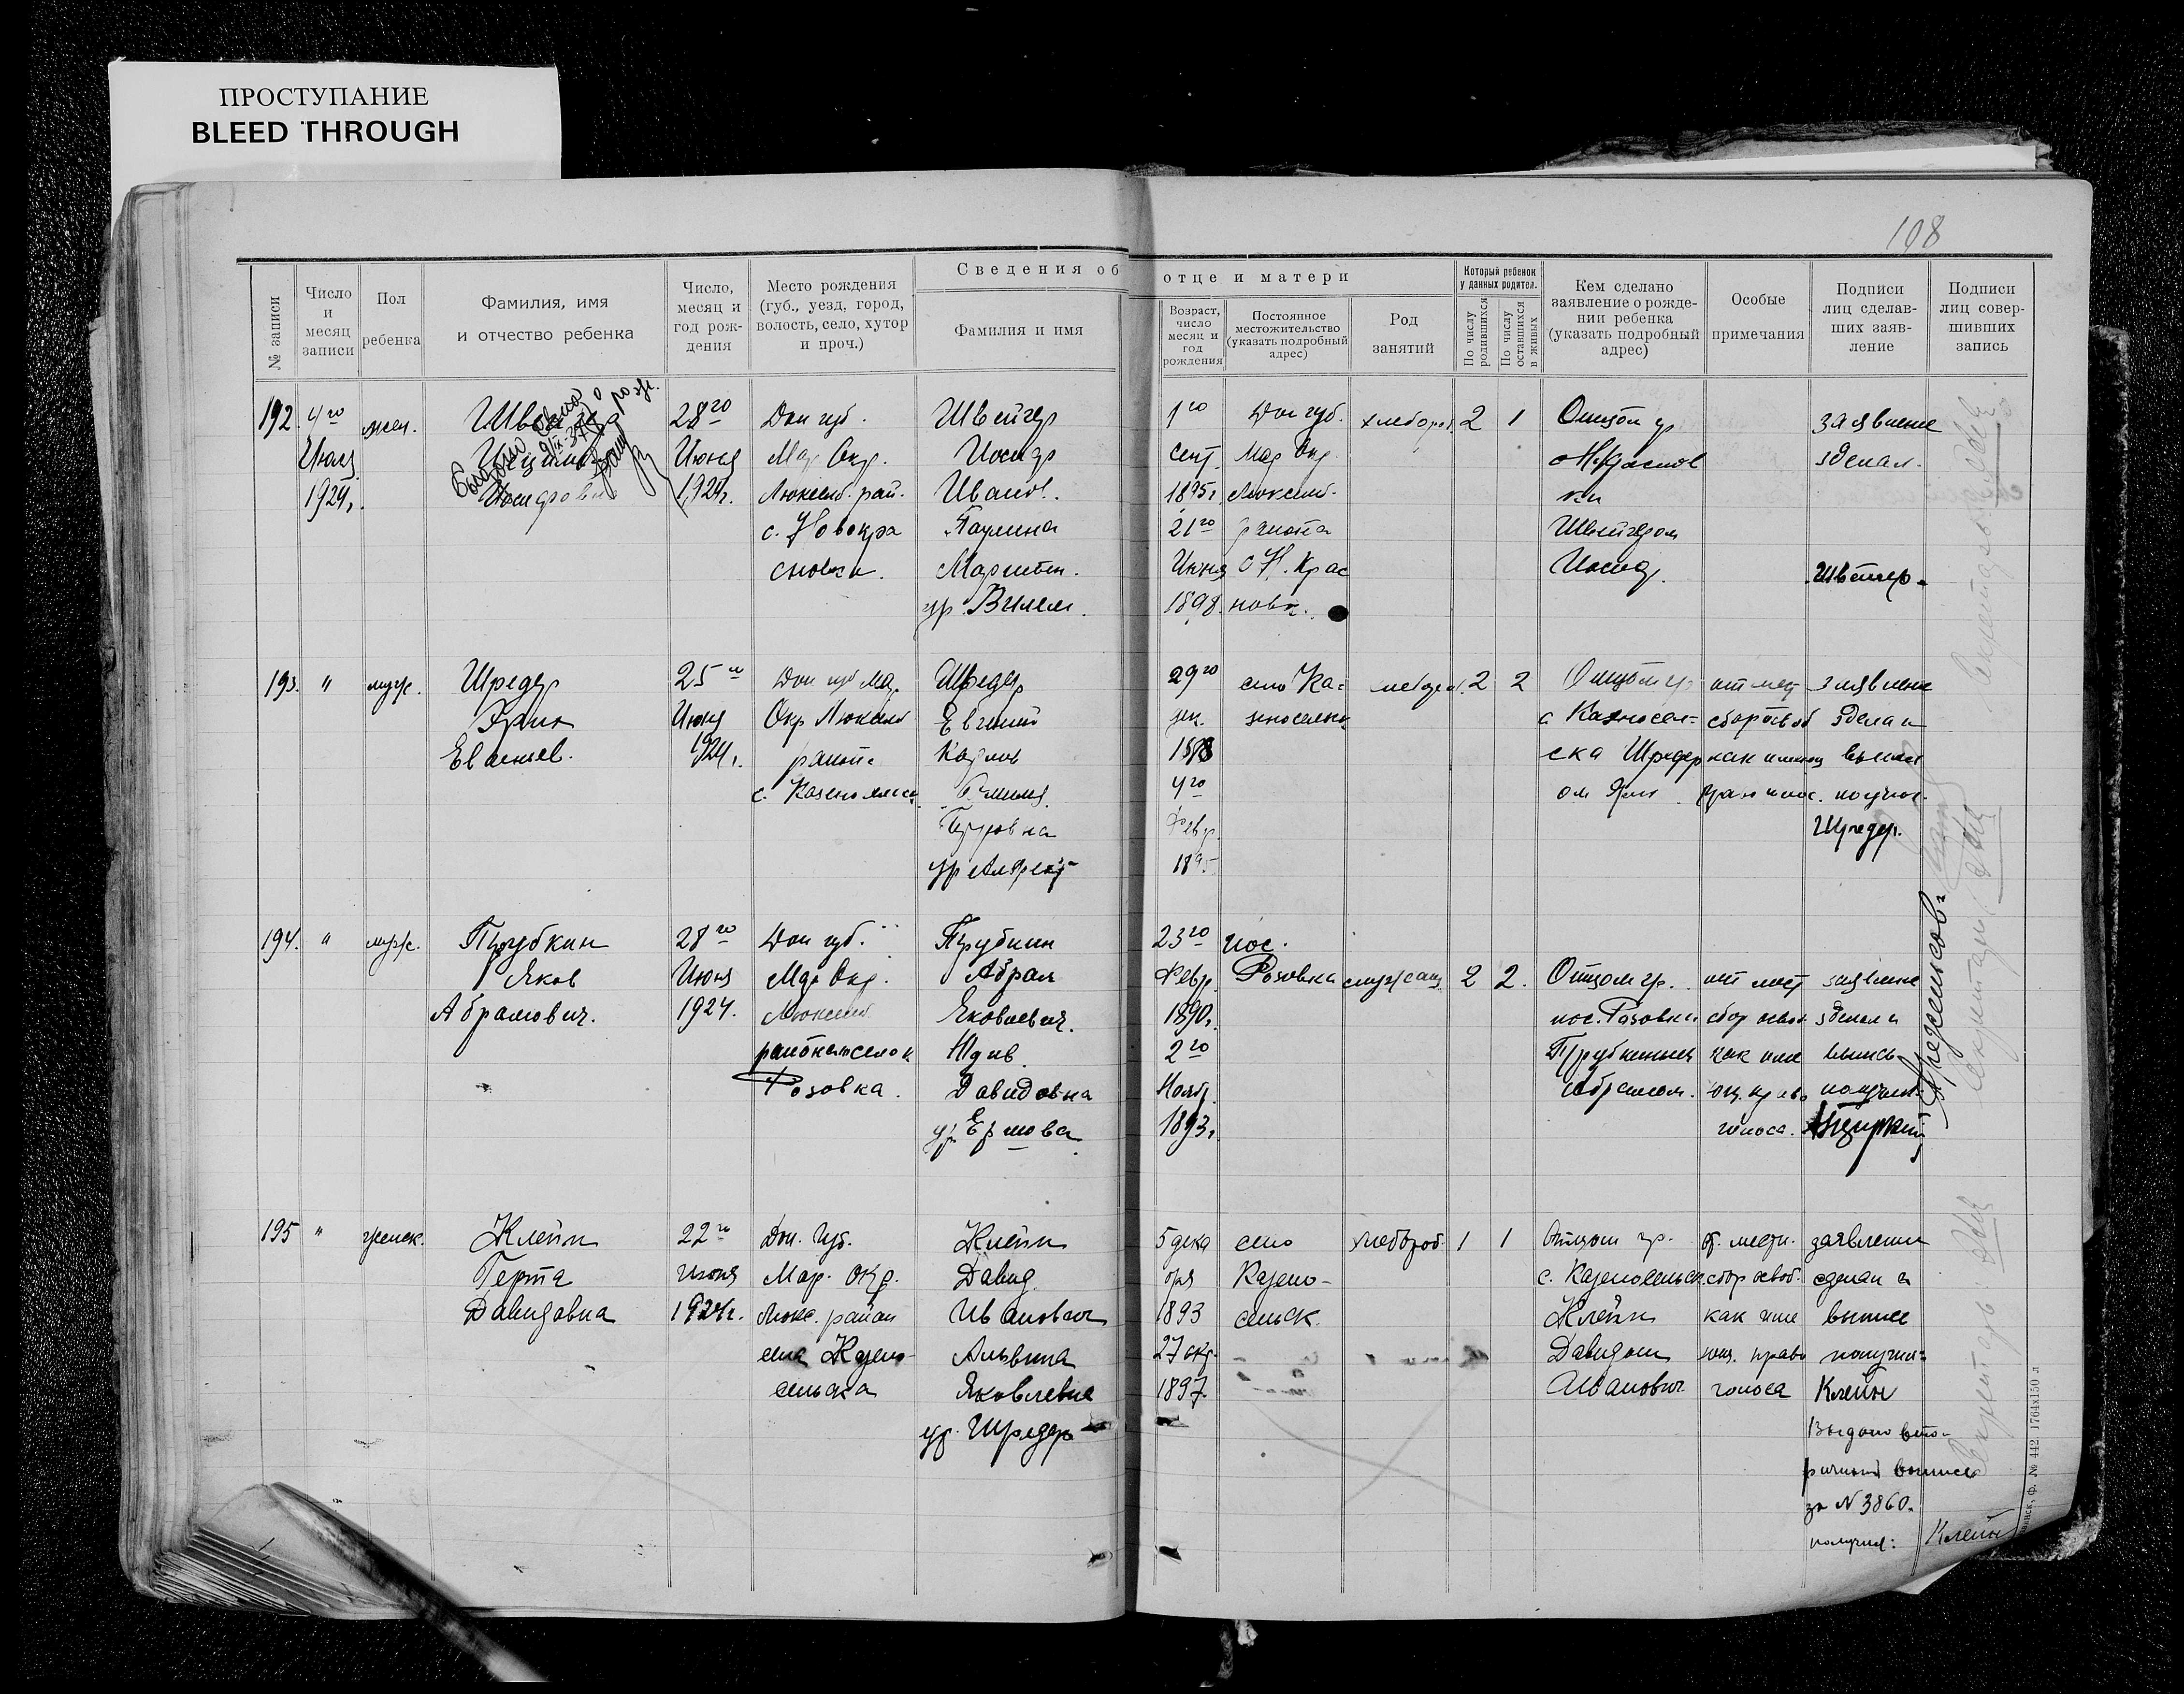 ПРОСТУПАНИЕ
BLEED THROUGH
198
Сведения об отце и матери
№ записи
Число и месяц записи
Пол ребенка
Фамилия, имя и отчество ребенка
Число, месяц и год рождения
Место рождения (губ., уезд, город, волость, село, хутор и проч.)
Фамилия и имя
Возраст, число месяц и год рождения
Постоянное местожительство (указать подробный адрес)
Род занятий
Который ребенок у данных родител.
По числу родившихся
По числу оставшихся в живых
Кем сделано заявление о рождении ребенка (указать подробный адрес)
Особые примечания
Подписи лиц сделавших заявление
Подписи лиц совершивших запись
192
4го
Июля
1924г.
жен.
28го
Июня
1924г.
Дон губ.
Мар Окр.
Люксемб. рай.
с. Новокра
сновки.
Швейгер
Иосиф
Иванов.
Паулина
Мартин.
ур. Вилем.
1го
сент.
1895г.
21го
Июня
1898.
Дон губ.
Мар Окр.
Люксемб.
района
с Н. Крас
новк.
хлебороб.
2
1
Отцом гр
Швейгером
Иосиф.
заявление
зделал.
193.
"
муж.
Шредер
Евгеньев.
25го
Июня
1924г.
Дон губ Мар
Окр Люксемб
района
Шредер
Евгений
Карлов
29го
дек.
4го
Февр.
село Ка-
зеносельск
2
2
Отцом гр
с Казеносел-
ска Шредер
от мест
сбор освоб
заявление
зделал
выпис
получил.
Шредер.
194.
"
муж.
Трубкин
Яков
Абрамович.
28го
Июня
1924.
Дон губ.
Мар Окр.
Люксемб
района поселок
Розовка.
Трубкин
Абрам
Яковлевич.
Юдив.
Давидовна
23го
Февр.
1890г.
2го
Ноябр.
1893г.
пос.
Розовка
служащ
2
2.
Отцом гр.
пос. Розовки
Трубкиным
Абрамом.
от мест
сбор освоб
как име
ющ. право
голоса.
заявление
зделал и
выпись
получил
195
"
женск.
Клейн
Герта
Давидовна
22го
июня
1924г.
Дон. Губ.
Мар. Окр.
Люкс. район
села Казено-
сельска
Клейн
Давид
Иванович
Альвина
Яковлевна
ур. Шредер
5 дека
бря
1893
27 окт.
1897.
село
Казено-
сельск.
хлебороб.
1
1
Отцом гр.
с. Казеносельск.
Клейн
Давидом
Иванович
от. местн.
сбор освоб.
как име
ющ. право
голоса
заявление
сделал и
выпис
получил:
Клейн
Выдано вто-
ричный выпись
за № 3860.
получил:
Клейн
ф. № 442 1764х150 л